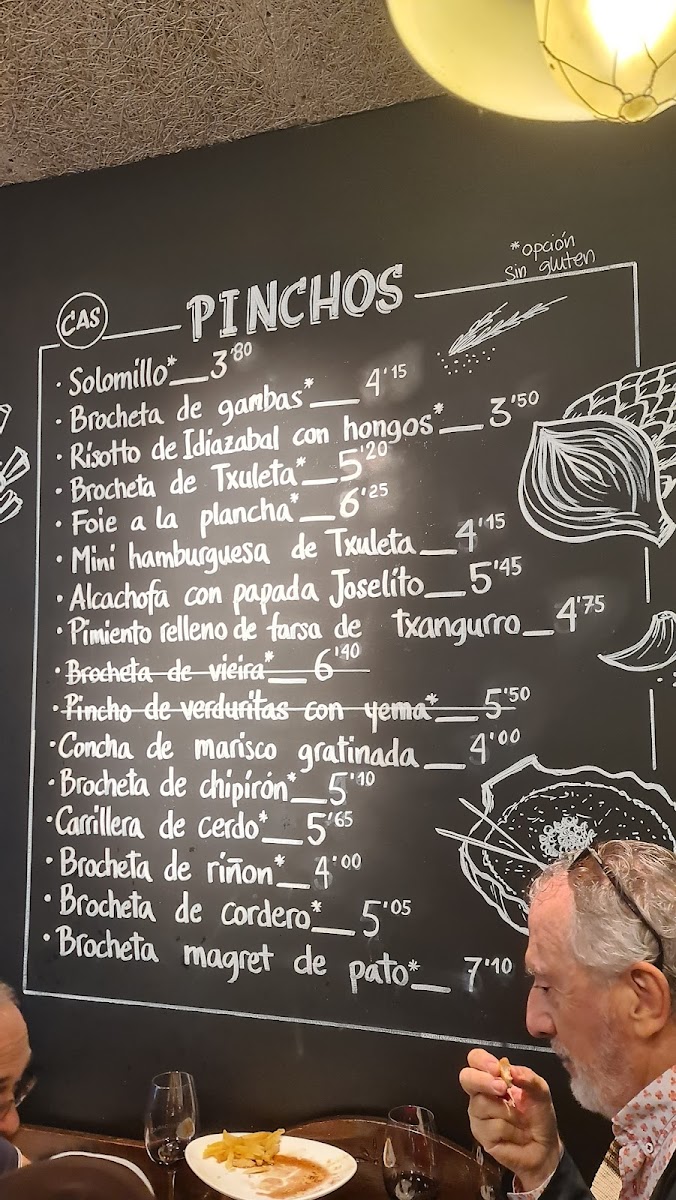 *opción
sin gluten
CAS
PINCHOS
· Solomillo*__3'80
· Brocheta de gambas*__4'15
· Risotto de Idiazabal con hongos*__3'50
· Brocheta de Txuleta*__5'20
· Foie a la plancha*__6'25
· Mini hamburguesa de Txuleta__4'15
· Alcachofa con papada Joselito__5'45
· Pimiento relleno de farsa de txangurro__4'75
· Brocheta de vieira*__6'40
· Pincho de verduritas con yema*__5'50
· Concha de marisco gratinada__4'00
· Brocheta de chipirón*__5'10
· Carrillera de cerdo*__5'65
· Brocheta de riñon*__4'00
· Brocheta de cordero*__5'05
· Brocheta magret de pato*__7'10